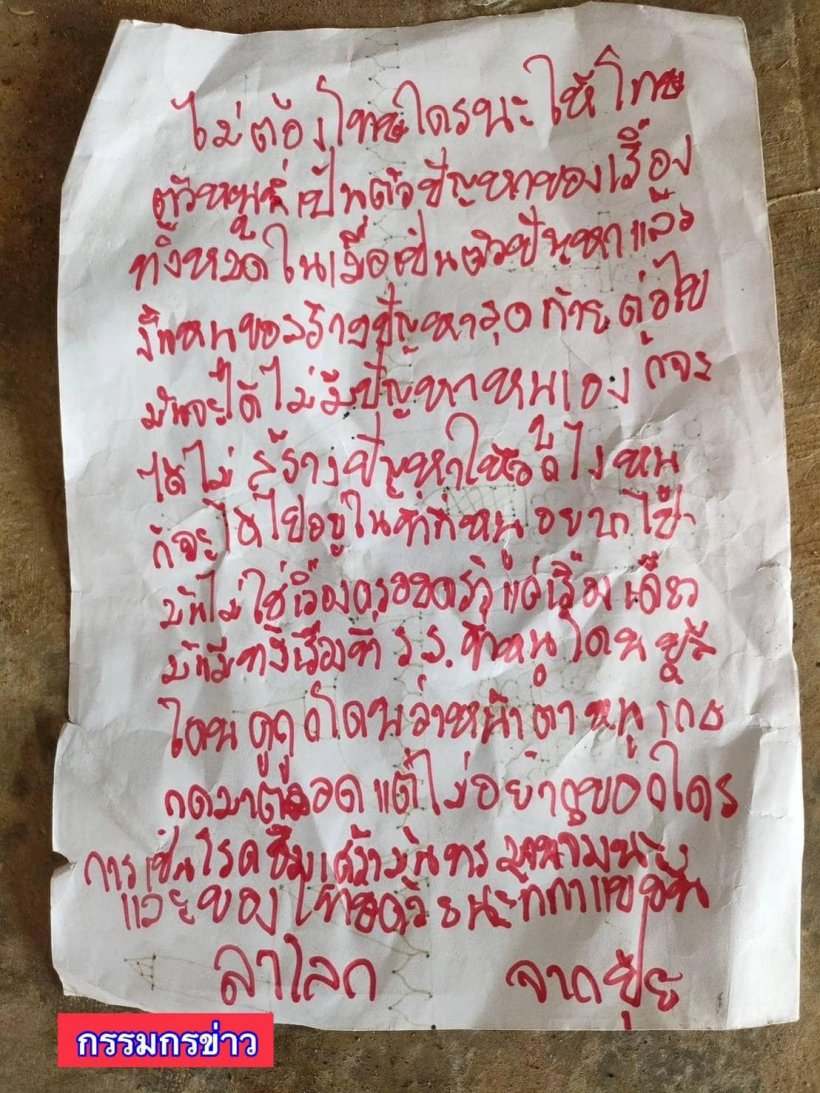 ไม่ต้องโทษใครนะ ให้โทษ
ตัวหนูที่เป็นตัวปัญหาของเรื่อง
ทั้งหมดในเมื่อเป็นตัวปันหาแล้ว
หนูขอสร้างปัญหาสุดท้ายต่อไป
มันจะได้ไม่มีปัญหาหนูเองก็จะ
ได้ไม่สร้างปัญหาให้ ไงหนู
ก็จะได้ไปอยู่ในที่ที่หนูอยากไป
มันไม่ใช่เรื่องครอบครัวแต่เรื่องเดียว
มันมีทั้งเรื่องที่ ร.ร. ที่หนูโดนบูลี่
โดนดูถูกโดนว่าหน้าตา หนูเก็บ
กดมาตลอดแต่ไม่อยาก ของใคร
การเป็นโรคซึมเศร้ามันทร
และขอโทษด้วยนะที่ทำแบบนี้
ลาโลก จากปุ้ย
กรรมกรข่าว